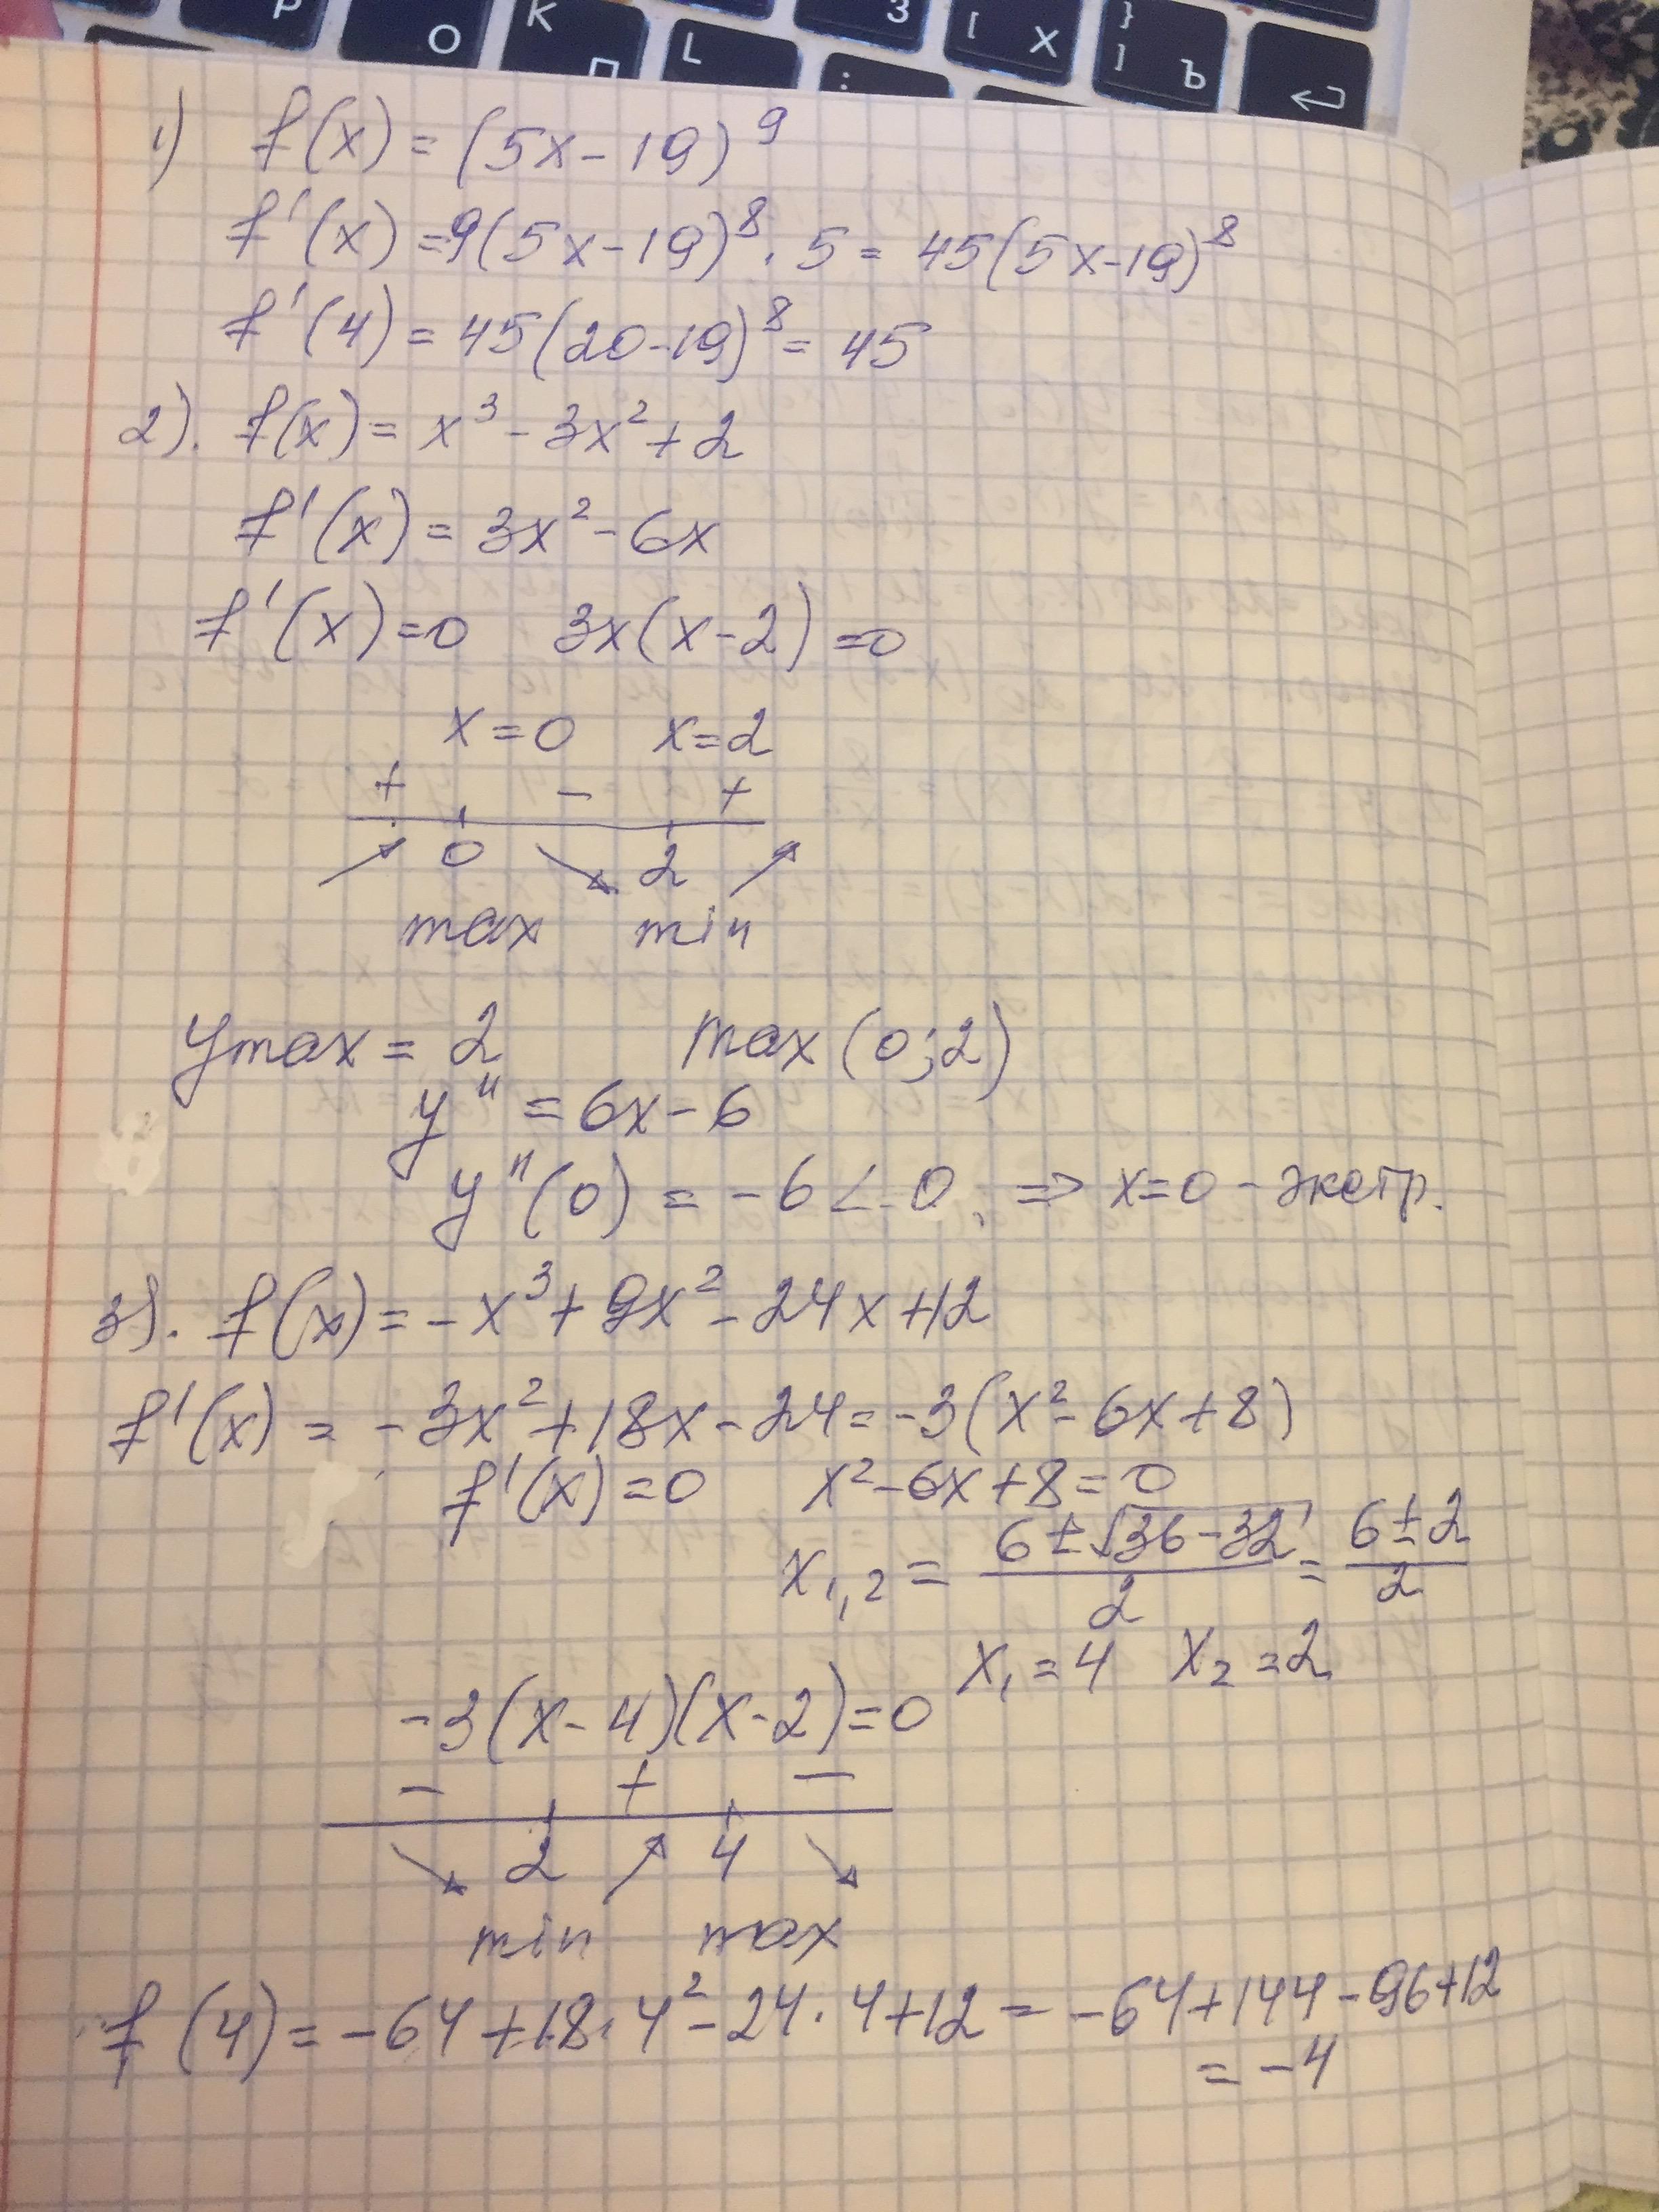 Р
О
К
П
L
З
[ Х
}
] Ъ
1) f(x) = (5x - 19)⁹
f'(x) = 9(5x - 19)⁸ · 5 = 45(5x-19)⁸
f'(4) = 45(20-19)⁸ = 45
2). f(x) = x³ - 3x² + 2
f'(x) = 3x² - 6x
f'(x) = 0 3x(x-2) = 0
x = 0 x = 2
+ - +
0 2
max min
ymax = 2 max (0;2)
y'' = 6x - 6
y''(0) = -6 < 0 ⇒ x=0 - экстр.
3). f(x) = -x³ + 9x² - 24x + 12
f'(x) = -3x² + 18x - 24 = -3(x² - 6x + 8)
f'(x) = 0 x² - 6x + 8 = 0
x₁,₂ = (6 ± √(36 - 32))/2 = (6 ± 2)/2
x₁ = 4 x₂ = 2
-3(x-4)(x-2) = 0
- + -
2 4
min max
f(4) = -64 + 18 · 4² - 24 · 4 + 12 = -64 + 144 - 96 + 12
= -4